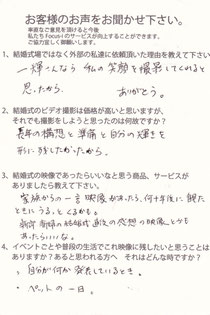 お客様のお声をお聞かせ下さい。
率直なご意見を頂けると今後
私たち Focus-i のサービスが向上することができます。
ご協力宜しく御願いします。
1、結婚式場ではなく外部の私達に依頼頂いた理由を教えて下さい
一輝さんなら 私の笑顔を撮影してくれると
思ったから。 ありがとう。
2、結婚式のビデオ撮影は価格が高いと思いますが、
それでも撮影をしようと思ったのは何故ですか?
長年の構想と準備と自分の輝きを
形に残したかったから。
3、結婚式の映像であったらいいなと思う商品、サービスが
ありましたら教えて下さい。
家族からの一言映像があったら、何十年後に観た
ときにうるっとくるかも。
新郎新婦の結婚式直後の感想の映像とかも
あったらいいな。
4、イベントごとや普段の生活でこれ映像に残したいと思うことは
ありますか?あると思われる方へ それはどんな時ですか?
・自分が何か発表しているとき。
・ペットの一日。